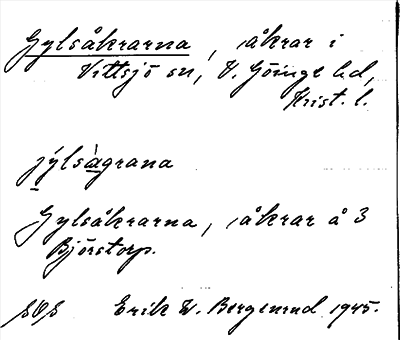 Gylsåkrarna, åkrar i
Vittsjö sn, V. Göinge hd,
Krist. l.
jýlsàgrana
Gylsåkrarna, åkrar å 3
Björstorp.
Erik W. Bergstrand 1945.